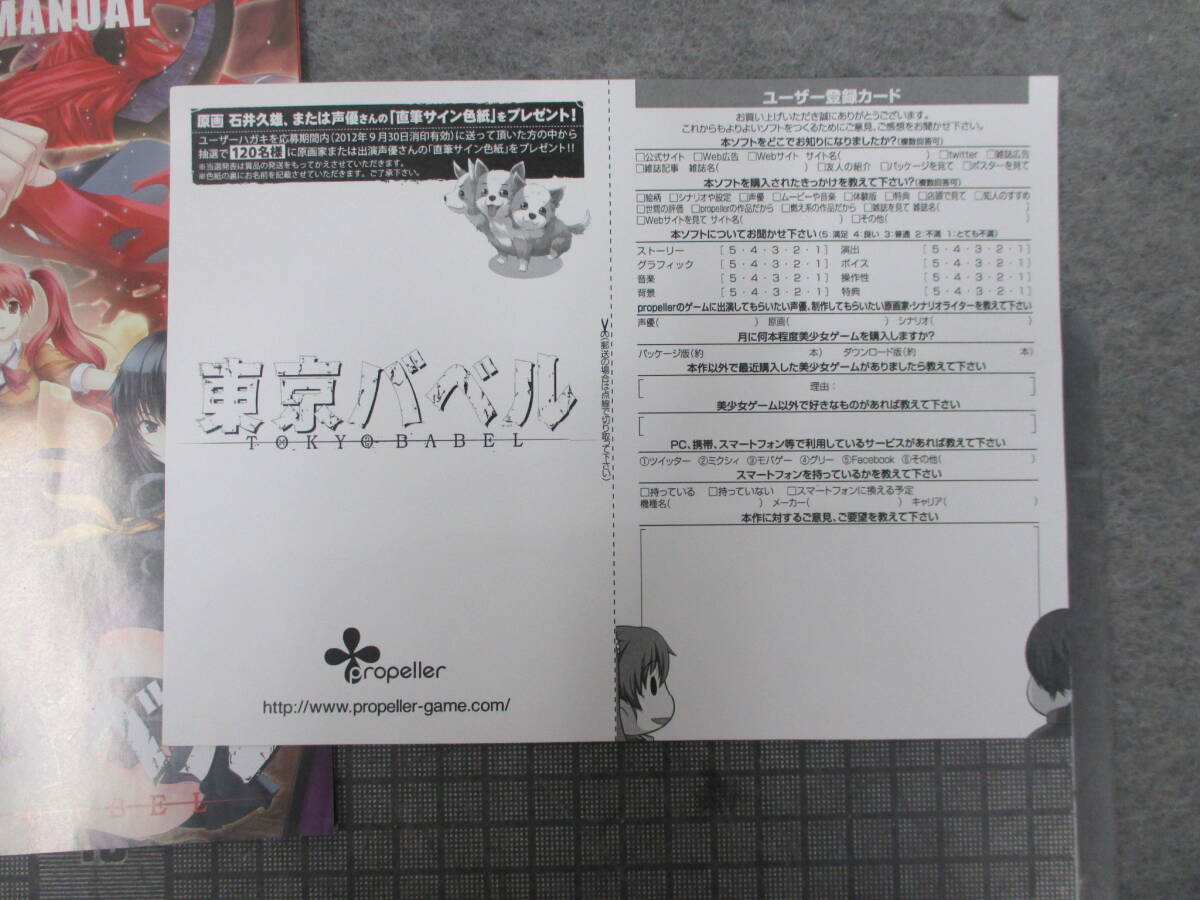 MANUAL
原画 石井久雄、または声優さんの「直筆サイン色紙」をプレゼント!
ユーザーハガキを応募期間内(2012年9月30日消印有効)に送って頂いた方の中から
抽選で120名様に原画家または出演声優さんの「直筆サイン色紙」をプレゼント!!
※当選発表は賞品の発送をもってかえさせていただきます。
※色紙の裏にお名前を記載させていただきます。ご了承下さい。
東京バベル
TOKYO BABEL
propeller
http://www.propeller-game.com/
(郵送の場合は点線で切り取って下さい)
ユーザー登録カード
お買い上げいただき誠にありがとうございます。
これからもよりよいソフトをつくるためにご意見、ご感想をお聞かせ下さい。
本ソフトをどこでお知りになりましたか?(複数回答可)
□公式サイト □Web広告 □Webサイト サイト名( ) □twitter □雑誌広告
□雑誌記事 雑誌名( ) □友人の紹介 □パッケージを見て □ポスターを見て
本ソフトを購入されたきっかけを教えて下さい?(複数回答可)
□絵柄 □シナリオや設定 □声優 □ムービーや音楽 □体験版 □特典 □店頭で見て □知人のすすめ
□世間の評価 □propellerの作品だから □燃え系の作品だから □雑誌を見て 雑誌名( )
□Webサイトを見て サイト名( ) □その他( )
本ソフトについてお聞かせ下さい(5:満足 4:良い 3:普通 2:不満 1:とても不満)
ストーリー [5・4・3・2・1] 演出 [5・4・3・2・1]
グラフィック [5・4・3・2・1] ボイス [5・4・3・2・1]
音楽 [5・4・3・2・1] 操作性 [5・4・3・2・1]
背景 [5・4・3・2・1] 特典 [5・4・3・2・1]
propellerのゲームに出演してもらいたい声優、制作してもらいたい原画家・シナリオライターを教えて下さい
声優( ) 原画( ) シナリオ( )
月に何本程度美少女ゲームを購入しますか?
パッケージ版(約 本) ダウンロード版(約 本)
本作以外で最近購入した美少女ゲームがありましたら教えて下さい
理由:
美少女ゲーム以外で好きなものがあれば教えて下さい
PC、携帯、スマートフォン等で利用しているサービスがあれば教えて下さい
①ツイッター ②ミクシィ ③モバゲー ④グリー ⑤Facebook ⑥その他( )
スマートフォンを持っているかを教えて下さい
□持っている □持っていない □スマートフォンに換える予定
機種名( ) メーカー( ) キャリア( )
本作に対するご意見、ご要望を教えて下さい
BEL